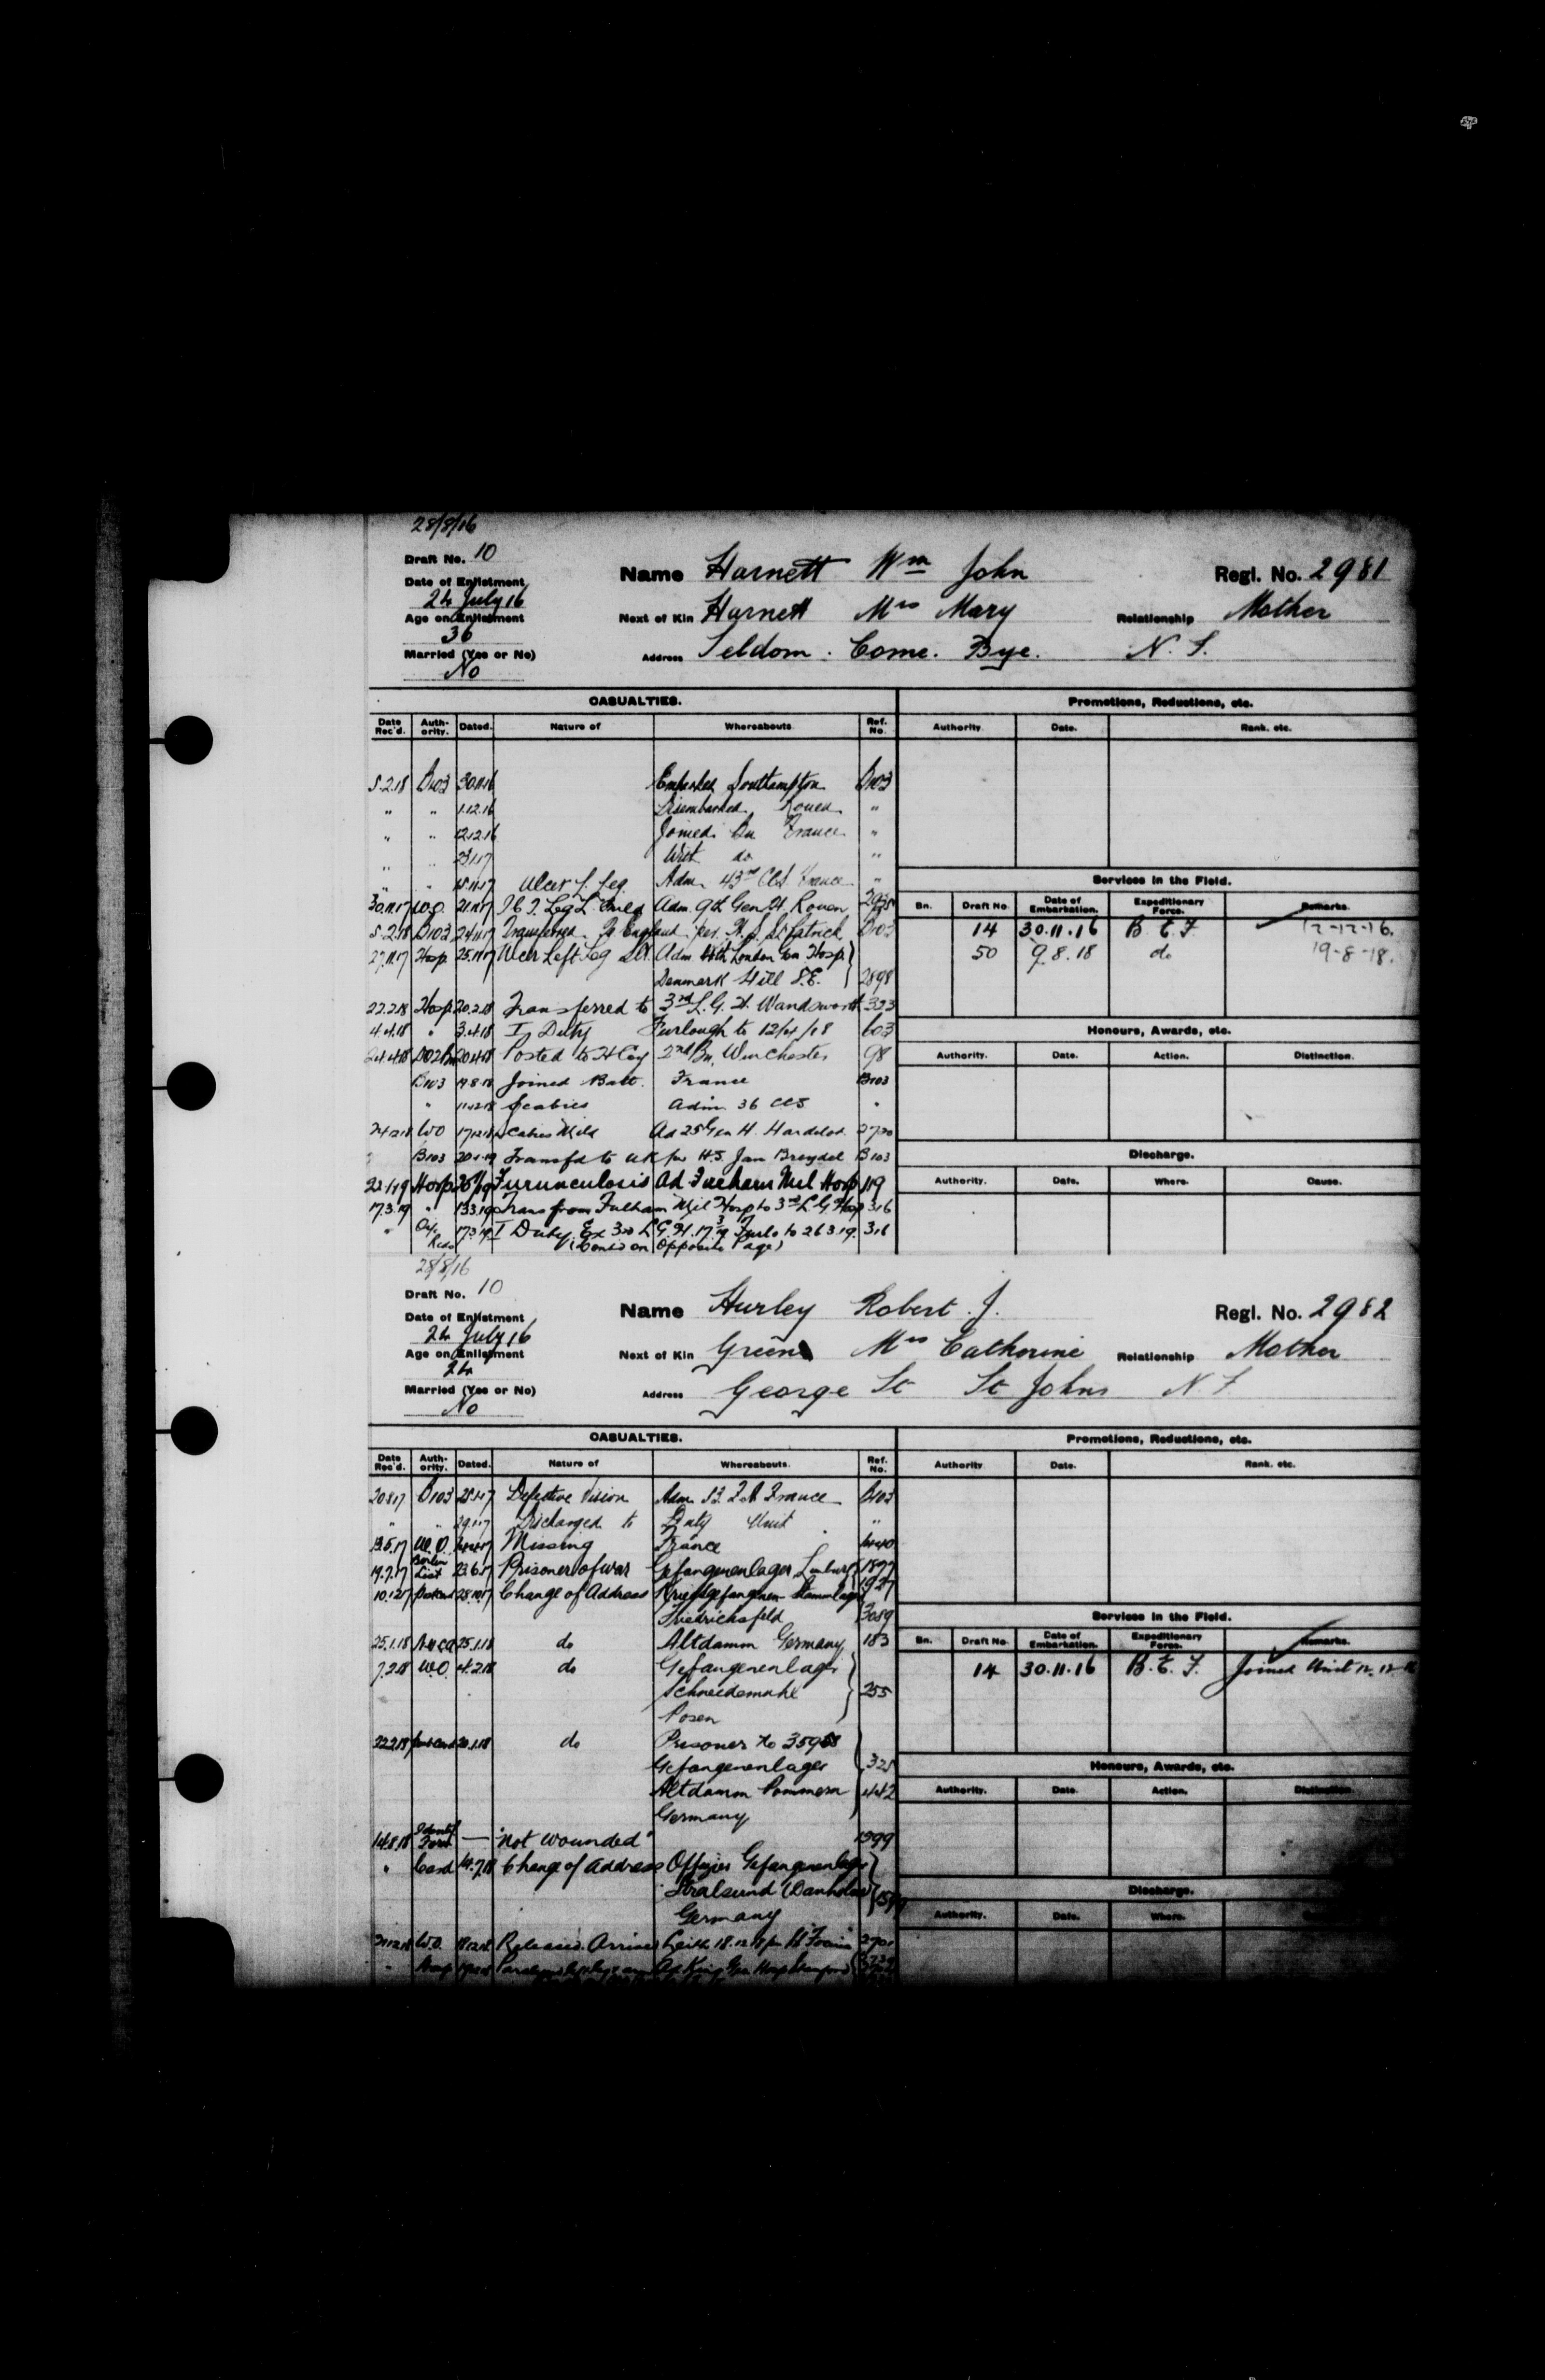 28/8/16
Draft No. 10
Name Harnett Wm John Regl. No. 2981
Date of Enlistment
24 July 16
Next of Kin Harnett Mrs Mary Relationship Mother
Age on Enlistment
36
Address Seldom. Come. Bye. N. F.
Married (Yes or No)
No
CASUALTIES. Promotions, Reductions, etc.
Date Rec'd. Auth-ority. Dated. Nature of Whereabouts. Ref. No. Authority. Date. Rank. etc.
5.2.18 B103 30.11.16 Embarked Southampton B103
" " 1.12.16 Disembarked Rouen "
" " 12.12.16 Joined Bn France "
" " Writ do "
" " 15.11.17 Ulcer L. Leg. Adm. 43rd CCS. France "
30.11.17 W.O. 21.11.17 I.C.T. Leg L. Mild Adm. 9th Gen H. Rouen
5.2.18 B103 24.11.17 Transferred To England per. H.S. St Patrick B103
27.11.17 Hosp 25.11.17 Ulcer Left Leg Adm 4th London Gen. Hosp.
Denmark Hill S.E. 2898
22.2.18 Hosp 20.2.18 Transferred to 3rd L. G. H. Wandsworth 323
4.4.18 " 3.4.18 I Duty Furlough to 12/4/18 603
24.4.18 20.4.18 Posted to H Coy 2nd Bn. Winchester 98
B103 19.8.18 Joined Batt. France B103
" 11.12.18 Scabies Adm. 36 CCS "
24.12.18 WO 17.12.18 Scabies Mild Ad 25 Gen H. Hardelot 2720
B103 20.1.19 Transfd to UK per H.S. Jan Breydel B103
22/1/19 Hosp 20/1/19 Furunculosis Ad Fulham Mil Hosp 119
17.3.19 " 13.3.19 Trans from Fulham Mil Hosp to 3rd L G Hosp 316
" 17.3.19 I Duty. Ex 3rd L.G.H. 17.3.19 Furlo to 26.3.19. 316
(Contd on Opposite Page)
Services in the Field.
Bn. Draft No. Date of Embarkation. Expeditionary Force. Remarks.
14 30.11.16 B. E. F. 12-12-16.
50 9.8.18 do 19-8-18.
Honours, Awards, etc.
Authority. Date. Action. Distinction.
Discharge.
Authority. Date. Where. Cause.
28/8/16
Draft No. 10
Name Hurley Robert. J. Regl. No. 2982
Date of Enlistment
24 July 16
Next of Kin Green Mrs Catherine Relationship Mother
Age on Enlistment
24
Address George St St Johns N. F
Married (Yes or No)
No
CASUALTIES. Promotions, Reductions, etc.
Date Rec'd. Auth-ority. Dated. Nature of Whereabouts. Ref. No. Authority. Date. Rank. etc.
20.8.17 B103 Defective Vision Adm. France B103
" " 29.1.17 Discharged to Duty Unit "
W.O. Missing France
19.7.17 Berlin List 23.6.17 Prisoner of war Gefangenenlager Limburg 1877
1927
10.12.17 Postcard 28.10.17 Change of Address Kriegsgefangenen Stammlager
Friedrichsfeld 3089
25.1.18 25.1.18 do Altdamm Germany 183
7.2.18 W.O. 4.2.18 do Gefangenenlager
Schneidemuhl 255
Posen
22.2.18 do Prisoner No
Gefangenenlager 325
Altdamm Pommern 442
Germany
14.8.18 — "Not wounded"
" Card 14.7.18 Change of Address Offizier Gefangenenlager
Stralsund (Danholm)
Germany
W.O. Released. Arrived Leith 18.12.18
" Hosp
Services in the Field.
Bn. Draft No. Date of Embarkation. Expeditionary Force. Remarks.
14 30.11.16 B. E. F. Joined Unit
Honours, Awards, etc.
Authority. Date. Action. Distinction.
Discharge.
Authority. Date. Where.